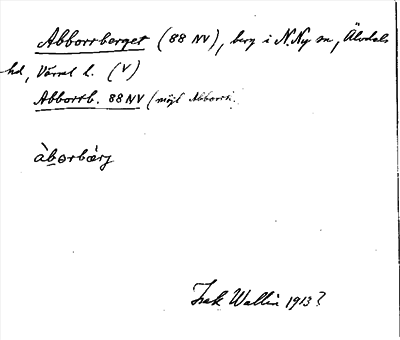 Abborrberget (88 NV), berg i N.Ny sn, Älvdals
hd, Värml l. (V)
Abborrb. 88 NV (möjl Abborrt.
àbørbærj
Isak Wallin 1913?